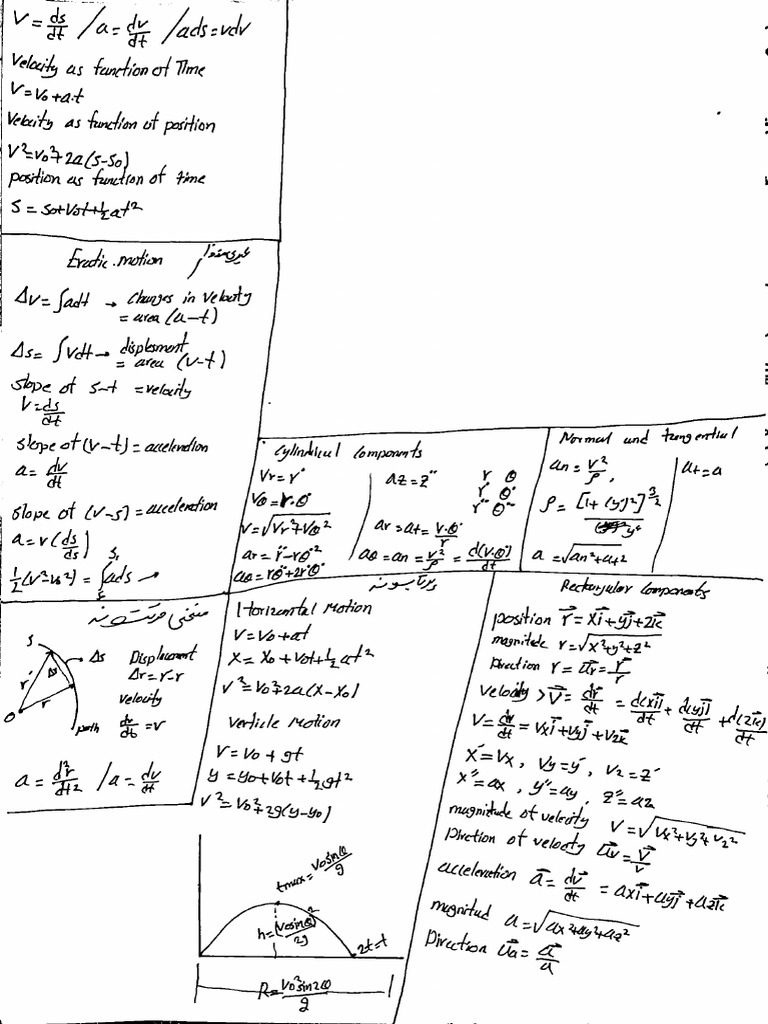 V = ds/dt / a = dv/dt / ads = vdv
Velocity as function of Time
V = V₀ + a.t
Velocity as function of position
V² = V₀² + 2a(S - S₀)
position as function of time
S = S₀ + V₀t + ½at²
Eratic motion
ΔV = ∫adt → changes in velocity
= area (a-t)
Δs = ∫Vdt → displasment
= area (V-t)
slope of s-t = velocity
V = ds/dt
slope of (V-t) = acceleration
a = dv/dt
slope of (V-S) = acceleration
a = v(ds/ds)
½(V² - V₀²) = ∫ads →
S₁
Cylindical Components
Vr = r˙
Vθ = r.θ˙
V = √Vr² + Vθ²
ar = r¨ - rθ˙²
aθ = rθ¨ + 2r˙θ˙
az = z¨
r θ
r˙ θ˙
r¨ θ¨
ar = at = v.θ˙/r
aθ = an = v²/ρ = d(v.θ˙)/dt
Normal and tangential
an = v²/ρ
at = a
ρ = [1 + (y')²]^3/2 / y"
a = √an² + at²
منحنی
S
Δs
Δr
r'
r
O
path
Displacment
Δr = r' - r
velocity
dr/dt = v
a = d²r/dt² / a = dv/dt
Horizontal Motion
V = V₀ + at
X = X₀ + V₀t + ½at²
V² = V₀² + 2a(X - X₀)
verticle Motion
V = V₀ + gt
y = y₀ + V₀t + ½gt²
V² = V₀² + 2g(y - y₀)
tmax = V₀sinθ/g
h = (V₀sinθ)²/2g
2t = t
R = V₀²sin2θ/g
Rectangular Components
position r⃗ = Xi⃗ + yj⃗ + zk⃗
magnitude r = √x² + y² + z²
Direction r = u⃗r = r⃗/r
velocity > V⃗ = dr⃗/dt = d(xi⃗)/dt + d(yj⃗)/dt + d(zk⃗)/dt
V = dr/dt = Vxi⃗ + Vyj⃗ + Vzk⃗
X' = Vx , Vy = y' , Vz = z'
X" = ax , y" = ay , z" = az
magnitude of velocity V = √Vx² + Vy² + Vz²
Direction of velocity u⃗v = V⃗/v
acceleration a⃗ = dv⃗/dt = axi⃗ + ayj⃗ + azk⃗
magnitud a = √ax² + ay² + az²
Direction u⃗a = a⃗/a